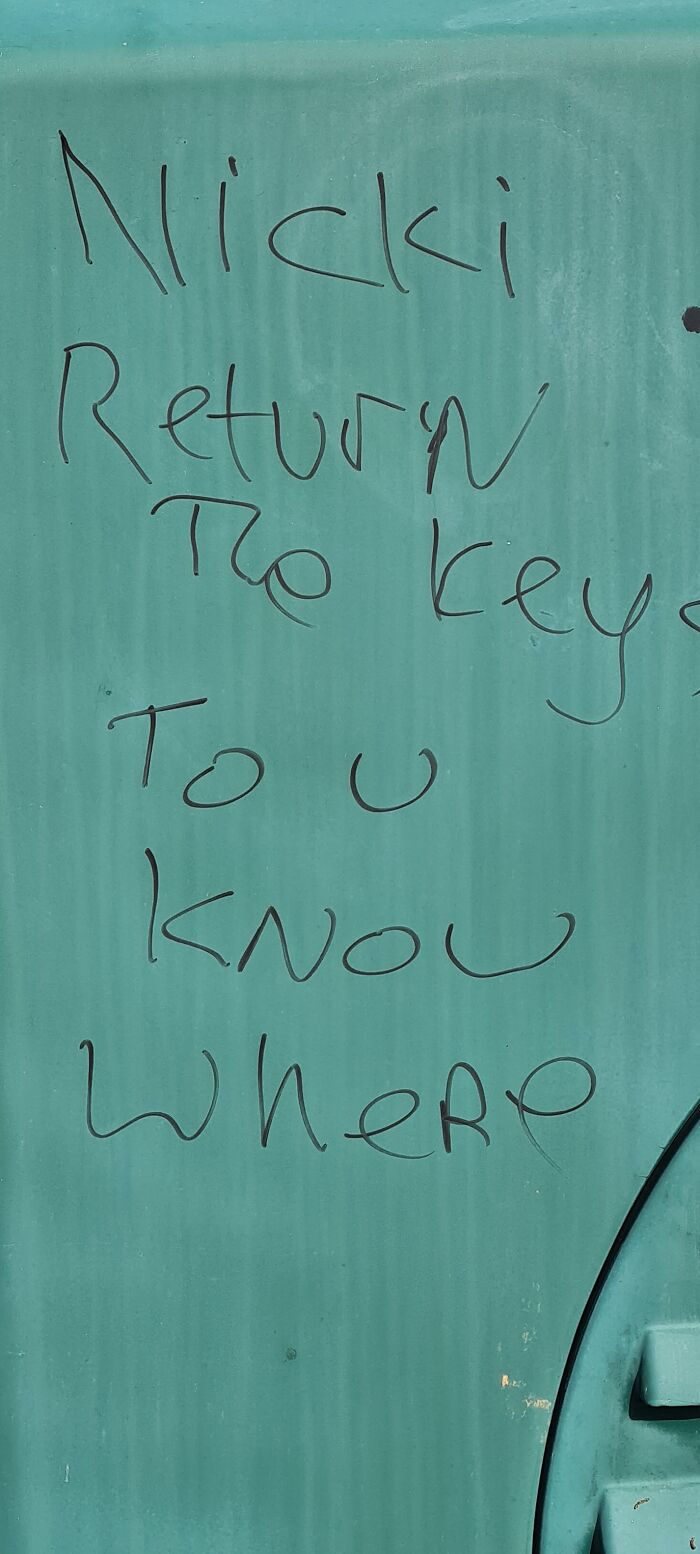 Nicki
Return
The keys
To u
Know
Where